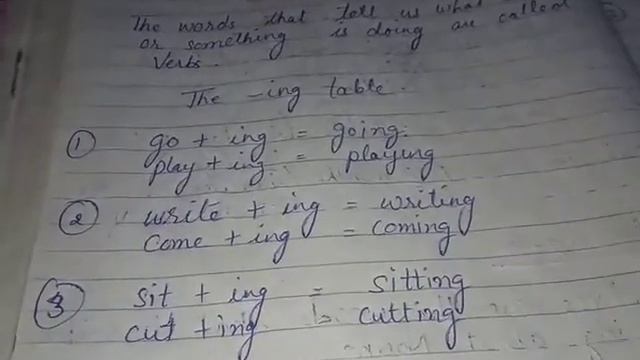 The words that tell us what
or something is doing are called
Verbs.
The -ing table.
① go + ing = going.
play + ing = playing
② write + ing = writing
come + ing = coming
③ sit + ing = sitting
cut + ing = cutting